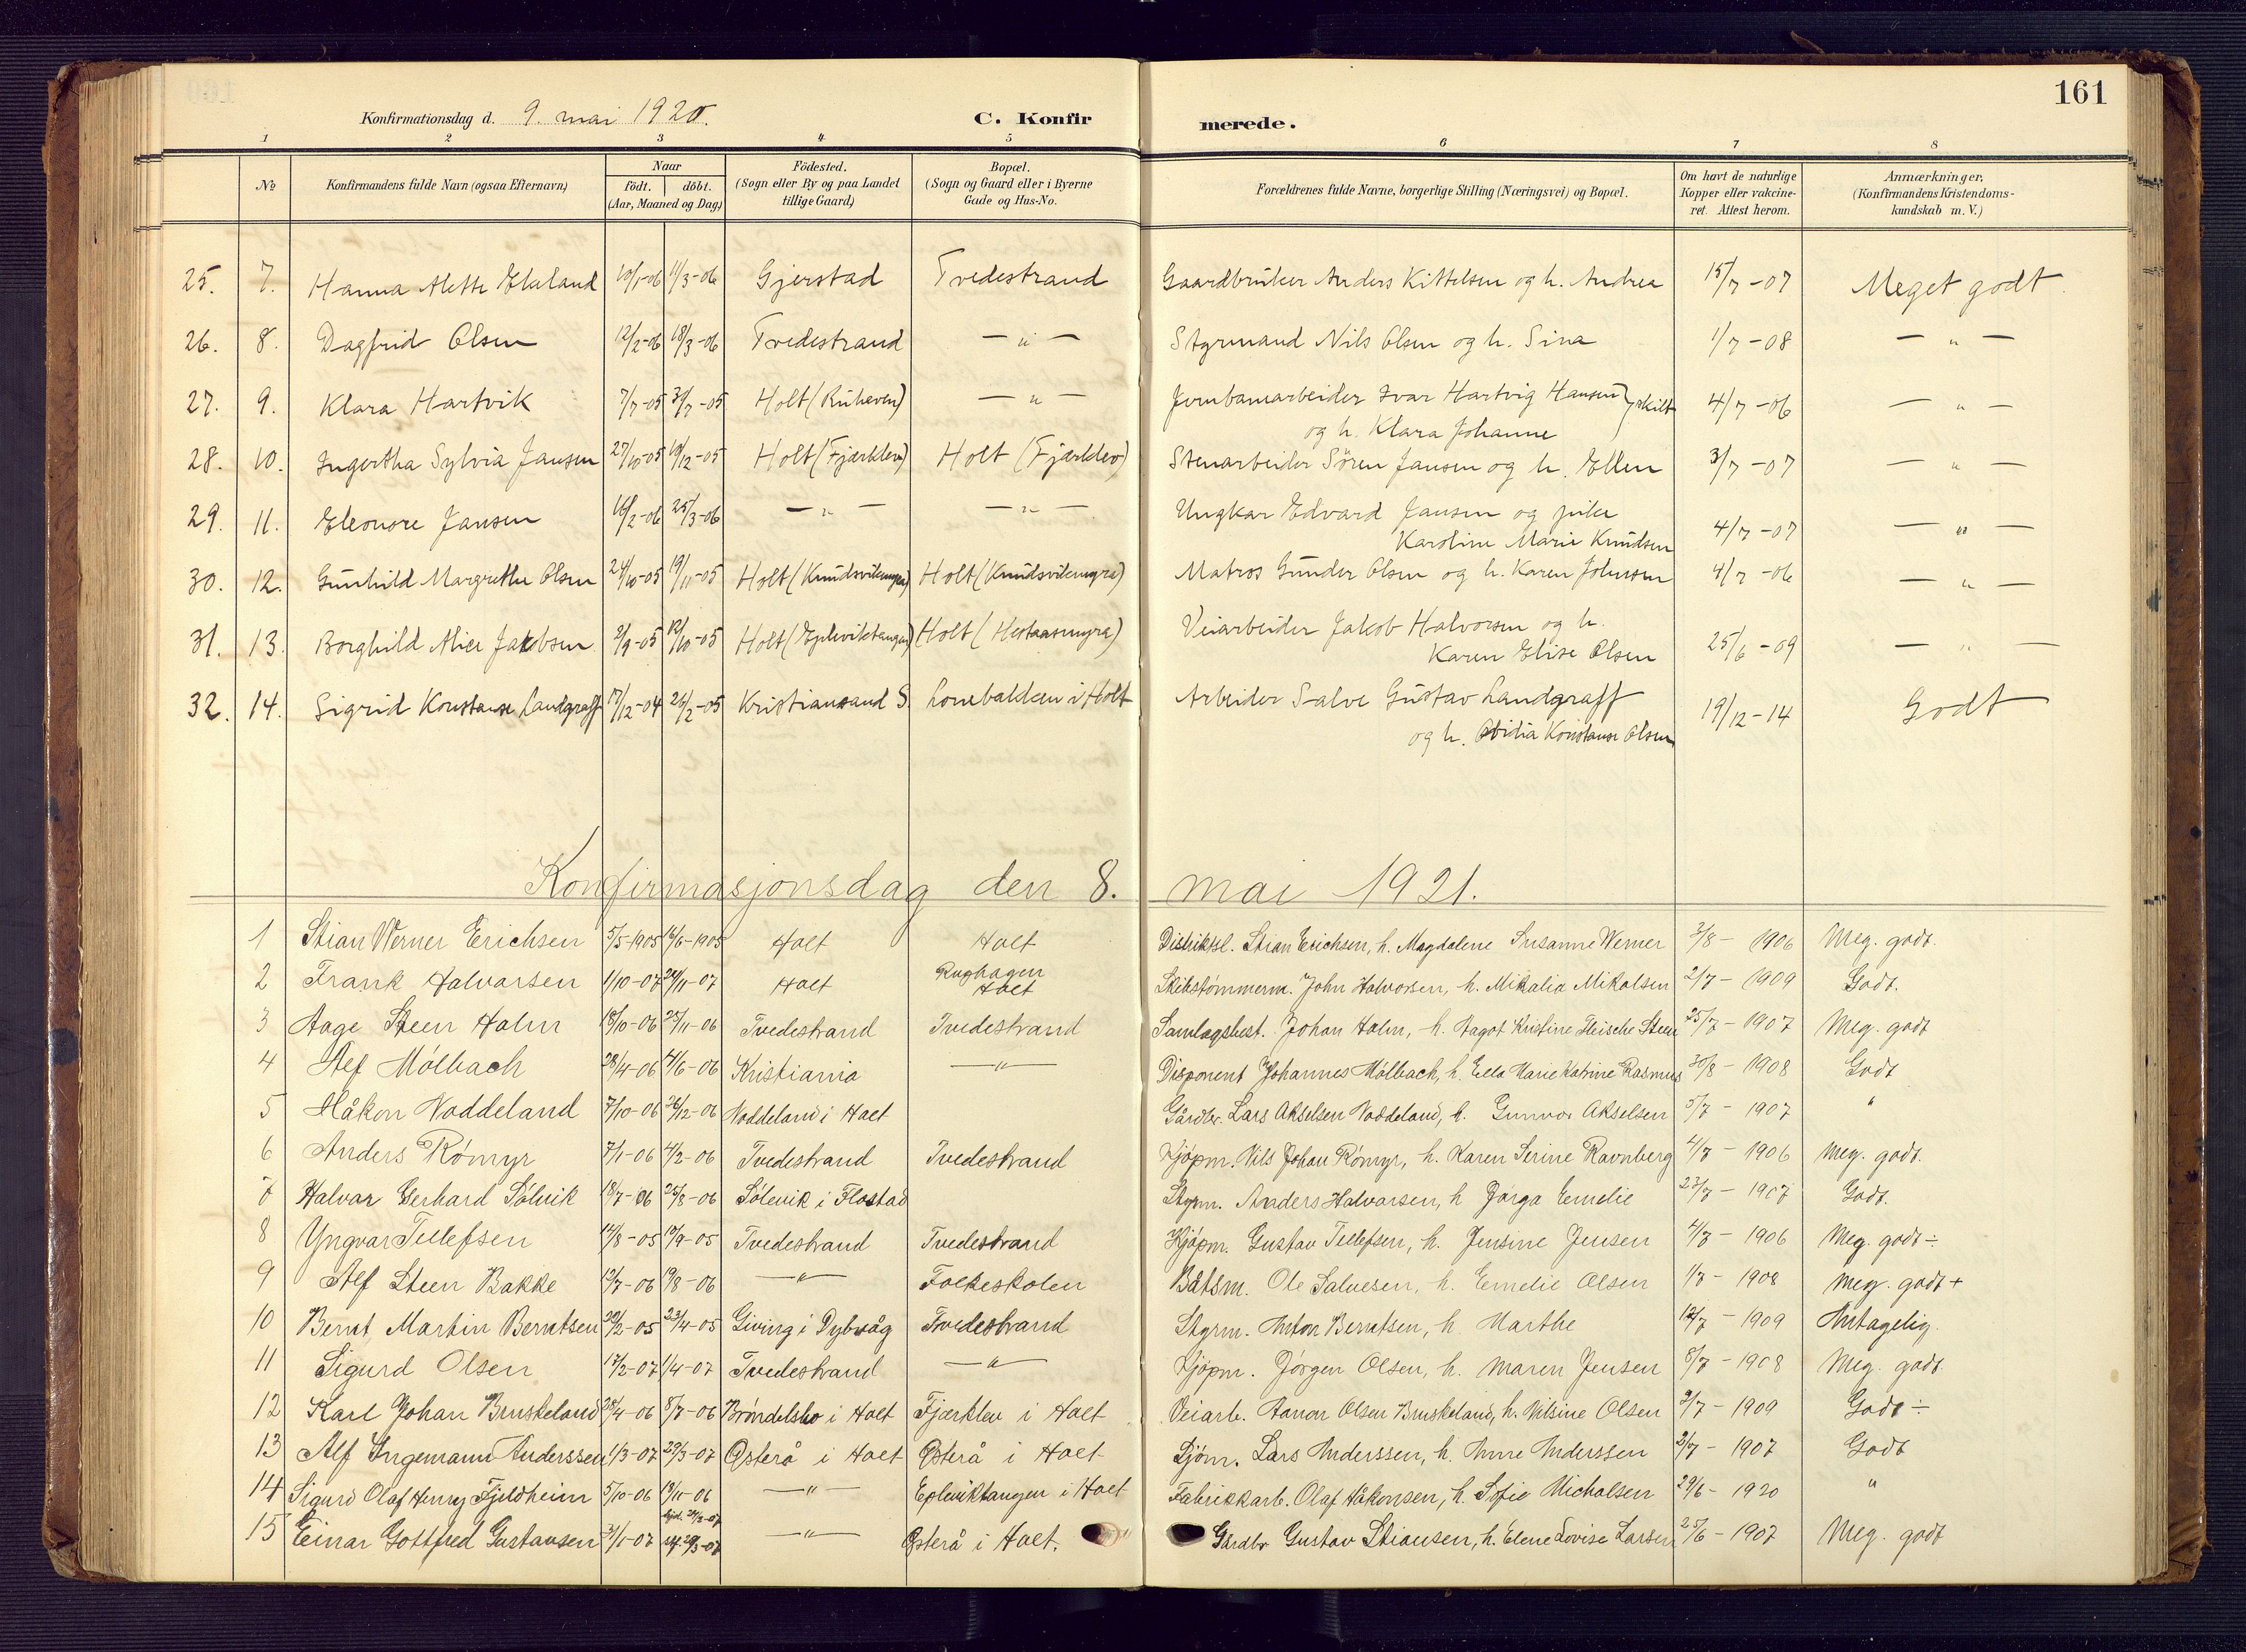 161
Konfirmationsdag d. 9. mai 1920. C. Konfir merede.
1 2 3 4 5 6 7 8
№ Konfirmandens fulde Navn (ogsaa Efternavn) Naar født. døbt. (Aar, Maaned og Dag) Födested. (Sogn eller By og paa Landet tillige Gaard) Bopæl. (Sogn og Gaard eller i Byerne Gade og Hus-No. Forældrenes fulde Navne, borgerlige Stilling (Næringsvei) og Bopæl. Om havt de naturlige Kopper eller vakcineret. Attest herom. Anmærkninger, (Konfirmandens Kristendomskundskab m. V.)
25. 7. Hanna Alette 10/1-06 11/3-06 Gjerstad Tvedestrand Gaardbruker Anders Kittelsen og h. Andrea 15/7-07 Meget godt.
26. 8. Dagfrid Olsen 12/2-06 18/3-06 Tvedestrand — " — Styrmand Nils Olsen og h. Sina 1/7-08 — " —
27. 9. Klara Hartvik 7/7-05 31/7-05 Holt — " — Jernbanearbeider Ivar Hartvig Hansen } skilt 4/7-06 — " —
og h. Klara Johanne
28. 10. Ingertha Sylvia Jansen 27/10-05 19/12-05 Holt (Fjærklev) Holt (Fjærklev) Stenarbeider Søren Jansen og h. Ellen 3/7-07 — " —
29. 11. Eleonore Jansen 16/2-06 25/3-06 — " — — " — Ungkar Edvard Jansen og pike
Karoline Marie Knudsen 4/7-07 — " —
30. 12. Gunhild Margrethe Olsen 24/10-05 19/11-05 Holt (Knudsvikmyra) Holt (Knudsvikmyra) Matros Gunder Olsen og h. Karen Johnsen 4/7-06 — " —
31. 13. Borghild Alice Jakobsen 2/9-05 12/10-05 Holt (Epleviktangen) Holt (Hestaasmyra) Veiarbeider Jakob Halvorsen og h.
Karen Elise Olsen 25/6-09 — " —
32. 14. Sigrid Konstanse Landgraff 17/12-04 26/2-05 Kristiansand S i Holt Arbeider Salve Gustav Landgraff
og h. Konstanse Olsen 19/12-14 Godt
Konfirmasjonsdag den 8. mai 1921.
1 Stian Werner Erichsen 5/5-1905 16/6-1905 Holt Holt Distriktsl. Stian Erichsen, h. Magdalene Susanne Werner 3/8-1906 Meg. godt.
2 Frank Halvorsen 1/10-07 24/11-07 Holt Rughagen Holt Skibstømmerm. John Halvorsen, h. Mikalia Mikalsen 2/7-1909 Godt.
3 Aage Steen Holm 18/10-06 25/11-06 Tvedestrand Tvedestrand Samlagsbest. Johan Holm, h. Dagot Kristine Fleische Steen 25/7-1907 Meg. godt
4 Alf Mølbach 28/4-06 4/6-06 Kristiania — " — Disponent Johannes Mølbach, h. Ella Marie Katrine Rasmus 30/8-1908 Godt
5 Håkon Noddeland 7/10-06 26/12-06 Noddeland i Holt Gårdbr. Lars Akselsen Noddeland, h. Gunvor Akselsen 5/7-1907 "
6 Anders Rømyr 7/1-06 4/2-06 Tvedestrand Tvedestrand Kjøpm. Nils Johan Rømyr, h. Karen Serine Ravnberg 4/7-1906 Meg. godt.
7 Halvor Gerhard Sølvik 18/7-06 26/8-06 Sølevik i Flostad Styrm. Anders Halvorsen, h Jørga Emelie 23/7-1907 Godt.
8 Yngvar Tellefsen 14/8-05 17/9-05 Tvedestrand Tvedestrand Kjøpm. Gustav Tellefsen, h. Jensine Jensen 4/7-1906 Meg. godt ÷
9 Alf Steen Bakke 12/7-06 19/8-06 — " — Folkeskolen Båtsm. Ole Salvesen, h. Emelie Olsen 1/7-1908 Meg. godt +
10 Bernt Martin Berntsen 20/2-05 23/4-05 Giving i Dybvåg Tvedestrand Styrm. Anton Berntsen, h. Marthe 12/7-1909 Antagelig.
11 Sigurd Olsen 17/2-07 1/4-07 Tvedestrand — " — Kjøpm. Jørgen Olsen, h. Maren Jensen 8/7-1908 Meg. godt
12 Karl Johan Bruskeland 28/4-06 8/7-06 Brøndelsbo i Holt Fjærklev i Holt Veiarb. Aanon Olsen Bruskeland, h. Nilsine Olsen 2/7-1909 Godt ÷
13 Alf Ingemann Anderssen 1/3-07 29/3-07 Østerå i Holt Østerå i Holt Sjøm. Lars Anderssen, h. Anne Anderssen 2/7-1907 Godt
14 Sigurd Olaf Henry Fjeldheim 5/10-06 18/11-06 — " — Epleviktangen i Holt Fabrikkarb. Olaf Håkonsen, h. Sofie Nicholsen 29/6-1920 "
15 Einar Gottfred Gustavsen 31/1-07 — " — Østerå i Holt. Gårdbr Gustav Stiansen, h. Elene Lovise Larsen 25/6-1907 Meg. godt